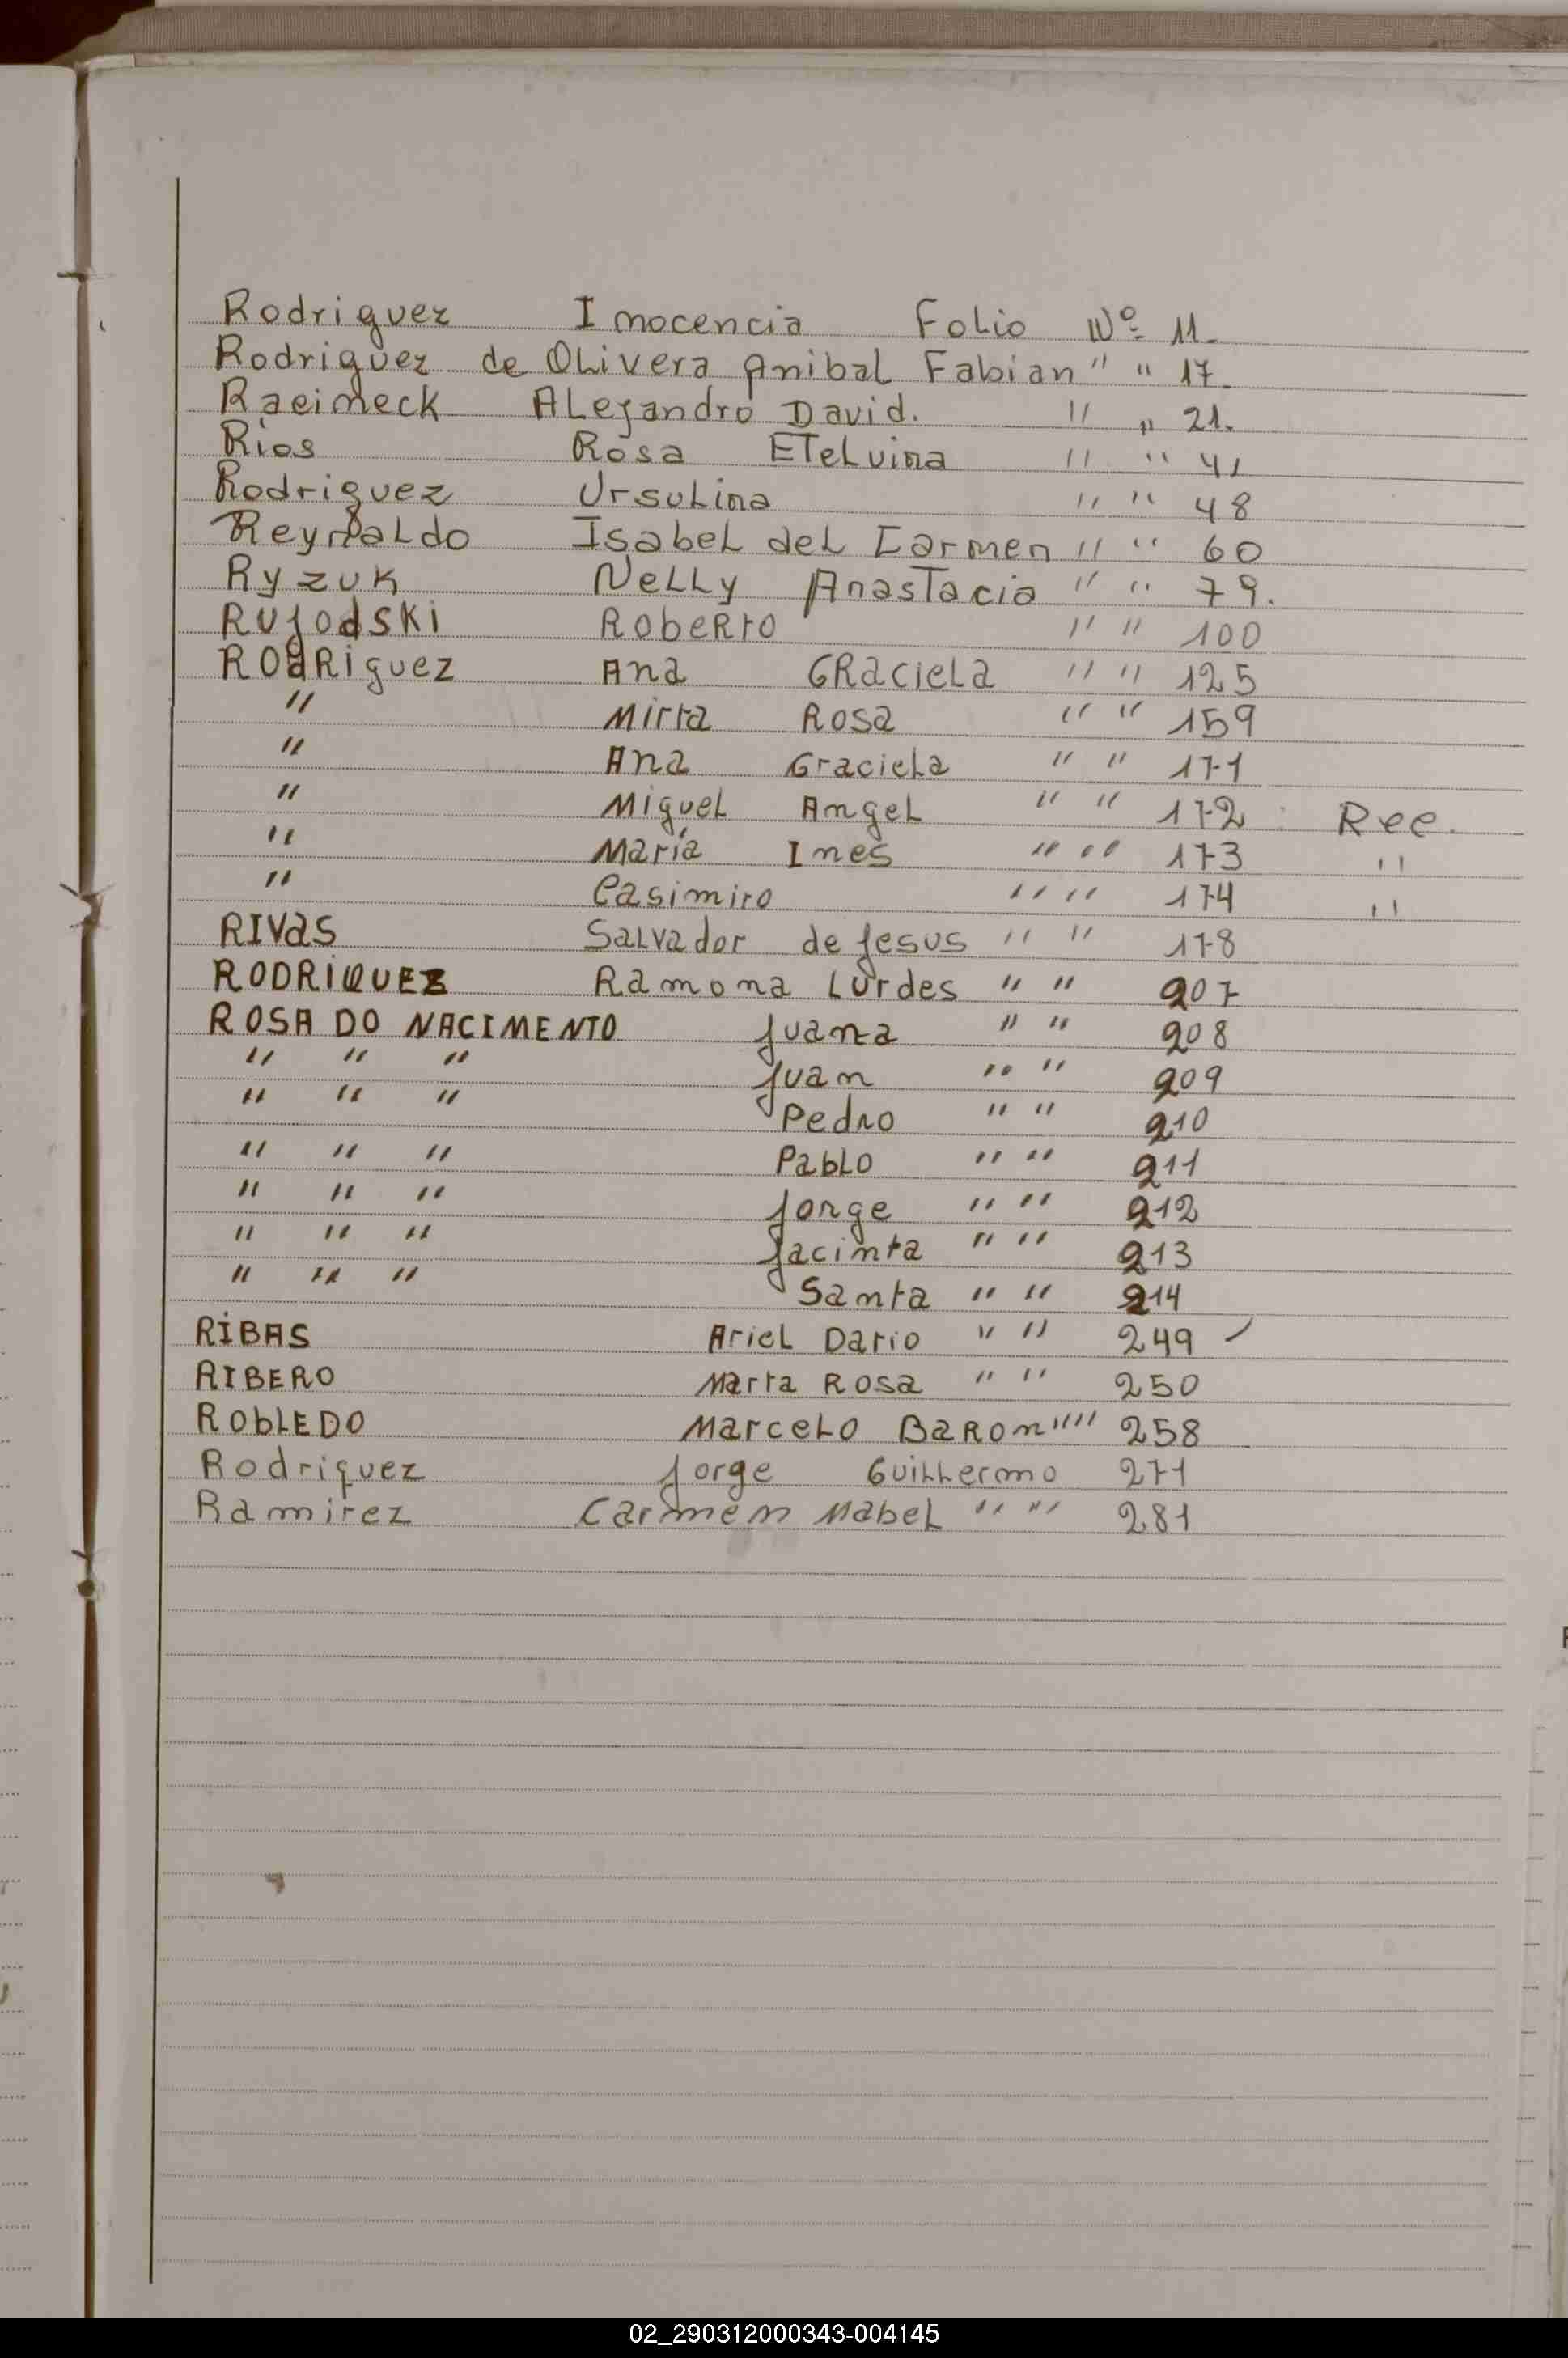 Rodriguez Inocencia Folio Nº 11.
Rodriguez de Olivera Anibal Fabian " " 17.
Raeimeck Alejandro David. " " 21.
Ríos Rosa Etelvina " " 41
Rodriguez Ursulina " " 48
Reynaldo Isabel del Carmen " " 60
Ryzuk Nelly Anastacia " " 79.
Rujodski Roberto " " 100
Rodriguez Ana Graciela " " 125
" Mirta Rosa " " 159
" Ana Graciela " " 171
" Miguel Angel " " 172 Ree.
" María Ines " " 173 "
" Casimiro " " 174 "
RIVAS Salvador de Jesus " " 178
RODRIQUEZ Ramona Lurdes " " 207
ROSA DO NACIMENTO Juana " " 208
" " " Juan " " 209
" " " Pedro " " 210
" " " Pablo " " 211
" " " Jorge " " 212
" " " Jacinta " " 213
" " " Santa " " 214
RIBAS Ariel Dario " " 249
RIBERO Marta Rosa " " 250
ROBLEDO Marcelo Baron " " 258
Rodriquez Jorge Guillermo 271
Ramirez Carmen Mabel " " 281
02_290312000343-004145